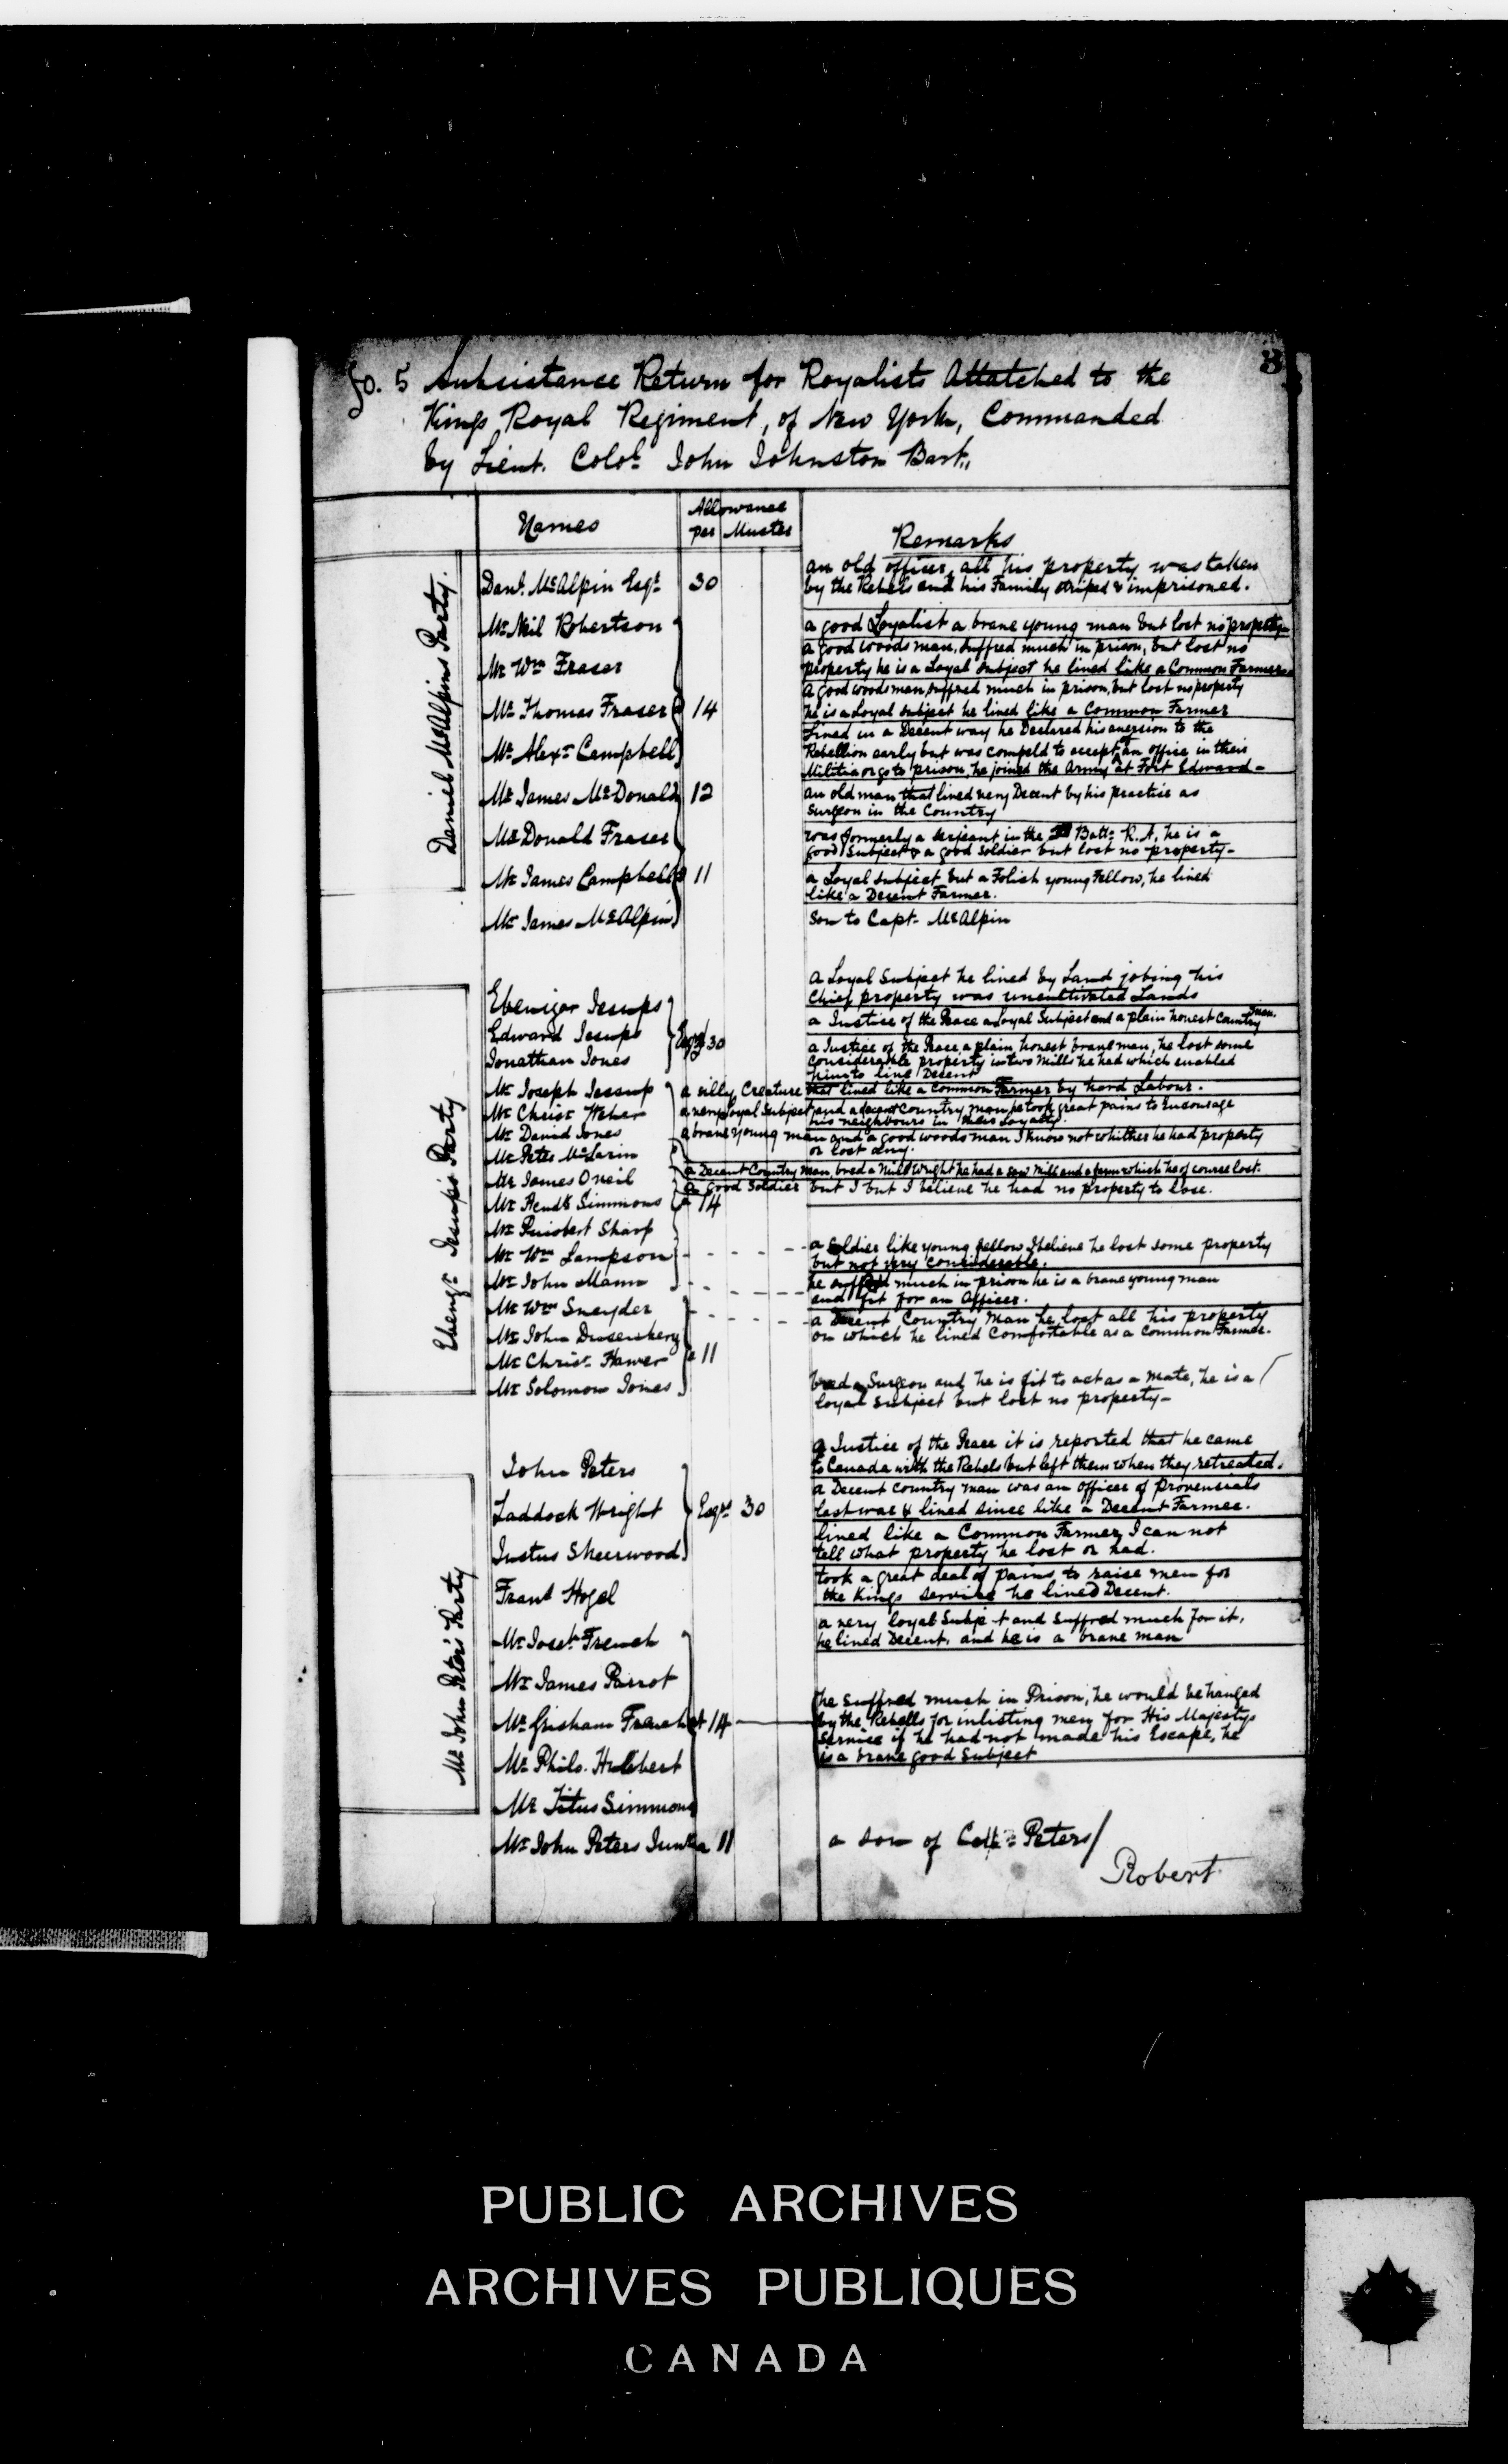 fo. 5 Subsistance Return for Royalists Attatched to the
Kings Royal Regiment, of New York, Commanded
by Lieut. Colol. John Johnston Bart.,
3
Names
Allowance
per Muster
Remarks
Daniel McAlpins Party.
Danl. McAlpin Esqr. 30
an old officer, all his property was taken
by the Rebels and his Family striped & imprisoned.
Mr. Neil Robertson
a good Loyalist a brave young man but lost no property
Mr. Wm Fraser
a good woods man, suffred much in prison, but lost no
property he is a Loyal subject he lived like a Common Farmer
Mr. Thomas Fraser @ 14
a good woods man, suffred much in prison, but lost no property
he is a Loyal subject he lived like a Common Farmer
Mr. Alexr. Campbell
Lived in a Decent way he Declared his aversion to the
Rebellion early but was compeld to accept of an office in their
Militia or go to prison, he joined the Army at Fort Edward-
Mr. James McDonald 12
an old man that lived very Decent by his practice as
Surgeon in the Country
Mr. Donald Fraser
was formerly a serjeant in the Batt. R.A. he is a
good Subject & a good soldier but lost no property-
Mr. James Campbell @ 11
a Loyal subject but a Folish young Fellow, he lived
like a Decent Farmer.
Mr. James McAlpin
Son to Capt. McAlpin
Ebenzr. Jesups Party
Ebenigar Jesups
a Loyal Subject he lived by Land jobing his
Chief property was uncultivated Lands
Edward Jesups
a Justice of the Peace a Loyal Subject and a plain honest Country man.
Jonathan Jones
Esqrs 30
a Justice of the Peace, a plain, honest brave man, he lost some
considerable property in two Mills he had which enabled
him to live Decent
Mr. Joseph Jessup
a silly Creature that lived like a Common Farmer by hard Labour.
Mr. Christ. Weher
a very Loyal Subject and a decent Country man he took great pains to Encourage
his neighbours in their Loyalty.
Mr. David Jones
a brave young man and a good woods man I know not whither he had property
or lost any.
Mr. Peter McLarin
a Decent Country man, bred a Mill Wright he had a saw Mill and a farm which he of course lost.
Mr. James Oneil
a Good Soldier but I but I believe he had no property to lose.
Mr. Hendk Simmons @ 14
Mr. Guisbert Sharp
Mr. Wm Lampson
a soldier like young fellow I believe he lost some property
but not very considerable.
Mr. John Mann
he suffred much in prison he is a brave young man
and fit for an Officer.
Mr. Wm Sneyder
a Decent Country Man he lost all his property
on which he lived Comfortable as a Common Farmer.
Mr. John Dusenbery
Mr. Christ. Hawer @ 11
Mr. Solomon Jones
bred a Surgeon and he is fit to act as a Mate, he is a
loyal subject but lost no property-
Mr. John Peters' Party
John Peters
a Justice of the Peace it is reported that he came
to Canada with the Rebels but left them when they retreated.
Laddock Wright Esqrs 30
a Decent Country man was an officer of Provensials
last war & lived since like a Decent Farmer.
Justus Sheerwood
lived like a Common Farmer, I can not
tell what property he lost or had.
Frans Hogel
took a great deal of pains to raise men for
the Kings service he lived Decent.
Mr. Josph French
a very loyal Subject and suffred much for it,
he lived Decent, and he is a brave man
Mr. James Parrot
Mr. Grisham French at 14
he suffred much in Prison, he would be hanged
by the Rebells for inlisting men for His Majestys
Service if he had not made his Escape, he
is a brave good Subject
Mr. Philo. Hulebert
Mr. Titus Simmons
Mr. John Peters Junr. a 11
a son of Coll. Peters/
Robert
PUBLIC ARCHIVES
ARCHIVES PUBLIQUES
CANADA